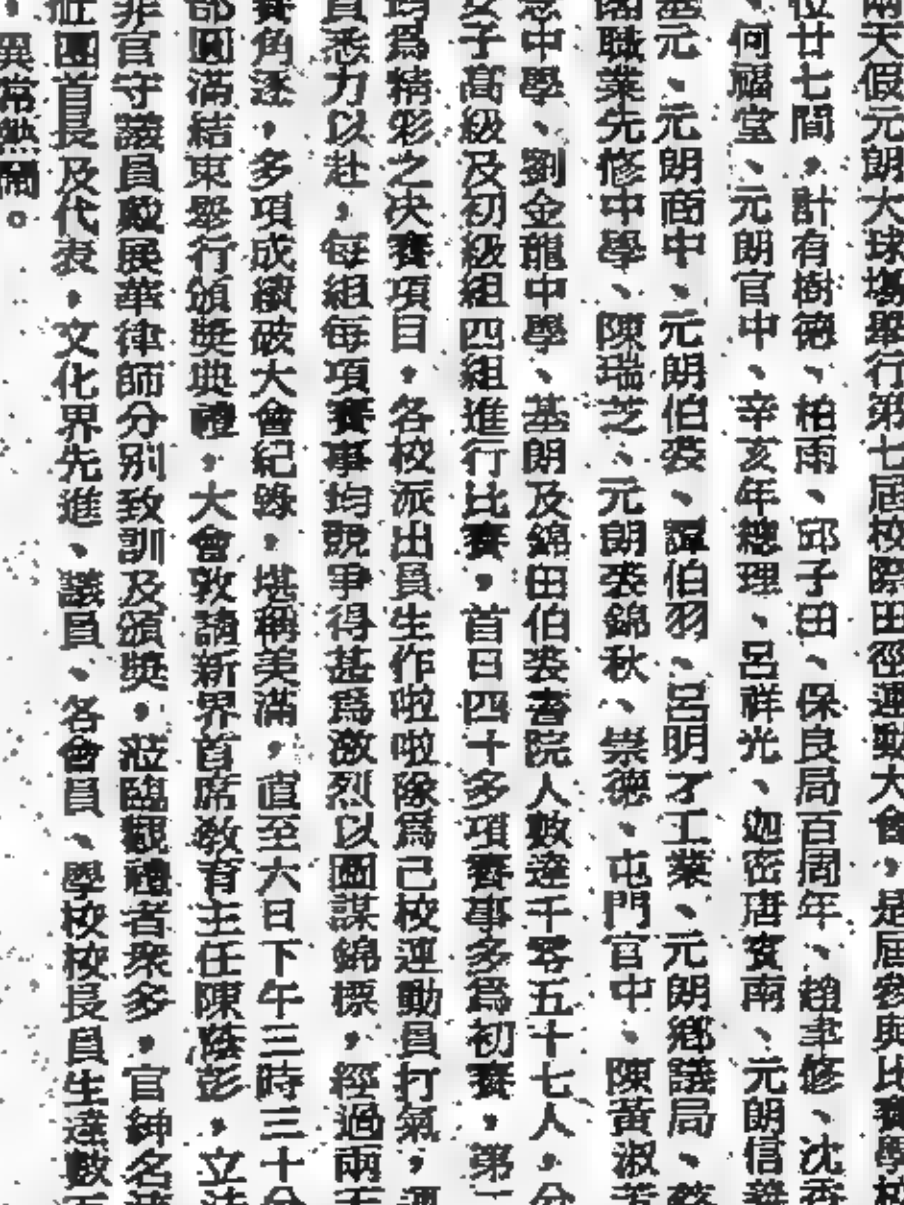 兩天假元朗大球場舉行第七屆校際田徑運動大會，是屆參與比賽學校
位廿七間，計有樹德、柏雨、邱子田、保良局百周年、趙聿修、沈香
、何福堂、元朗官中、辛亥年總理、呂祥光、迦密唐賓南、元朗信義
基元、元朗商中、元朗伯裘、譚伯羽、呂明才工業、元朗鄉議局、
閣職業先修中學、陳瑞芝、元朗裘錦秋、崇德、屯門官中、陳黃淑芳
念中學、劉金龍中學、基朗及錦田伯裘書院人數達千零五十七人，分
女子高級及初級組四組進行比賽，首日四十多項賽事多爲初賽，第一
均爲精彩之决賽項目，各校派出員生作啦啦隊爲己校運動員打氣，運
員悉力以赴，每組每項賽事均競爭得甚爲激烈以圖謀錦標，經過兩天
賽角逐，多項成績破大會紀錄，堪稱美滿，直至六日下午三時三十分
部圓滿結束舉行頒獎典禮，大會敦請新界首席教育主任陳蔭彭，立法
非官守議員戴展華律師分别致訓及頒獎，蒞臨觀禮者衆多，官紳名流
社團首長及代表，文化界先進、議員、各會員、學校校長員生達數百
，異常熱鬧。